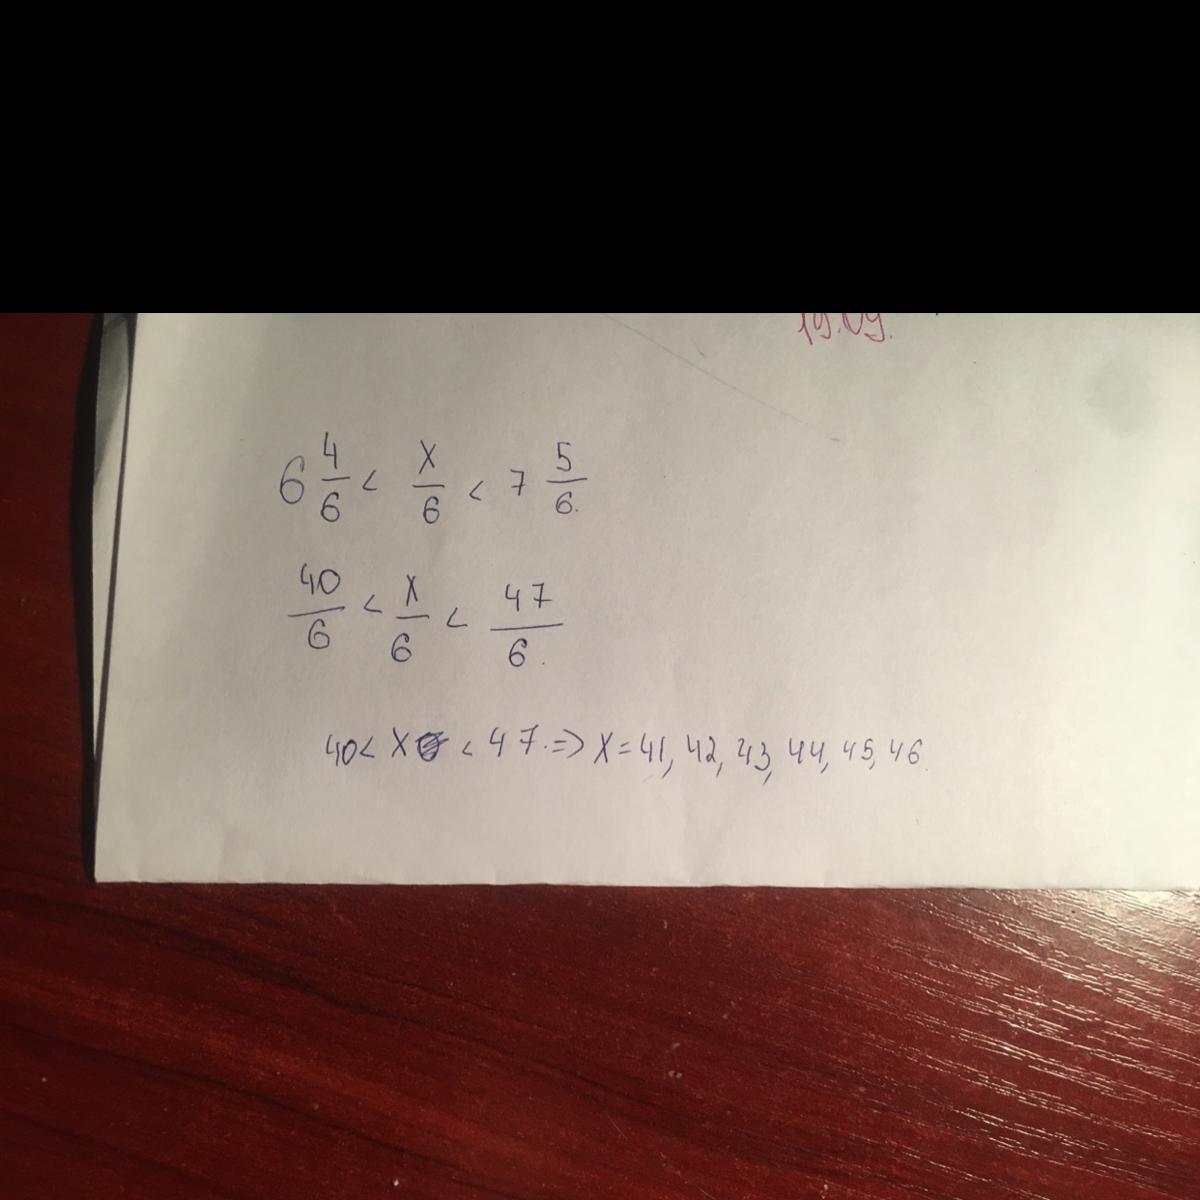 19.09.
6 4/6 < x/6 < 7 5/6.
40/6 < x/6 < 47/6.
40 < x < 47. => x = 41, 42, 43, 44, 45, 46.